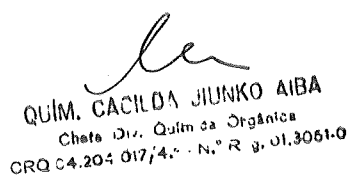 QUÍM. CACILDA JIUNKO AIBA
Chefe Div. Química Orgânica
CRQ 04.204 017/4.ª - N.º R g. 01.3061-0